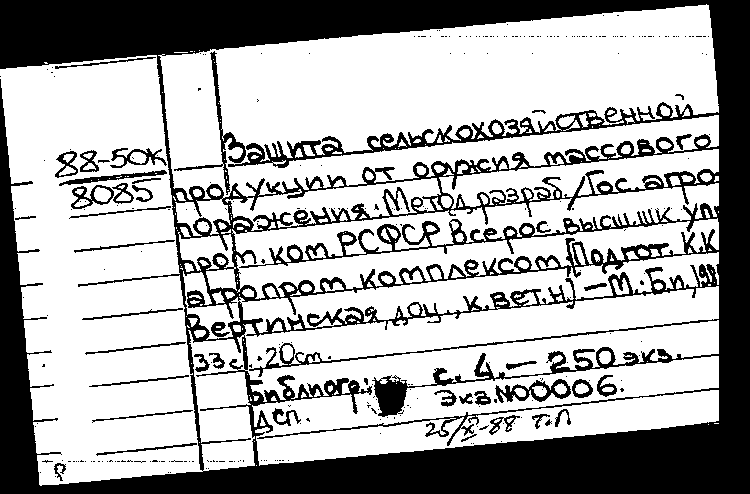 88-50К
8085
Защита сельскохозяйственной
продукции от оружия массового
поражения: Метод. разраб. / Гос. агро-
пром. ком. РСФСР, Всерос. высш. шк. упр.
агропром. комплексом; [Подгот. К.К.
Вертинская, доц., к.вет.н.] – М.: Б.и.,
33 с.; 20 см.
Библиогр.: с. 4. – 250 экз.
Дсп. Экз. №00006.
25/X-88 т.п